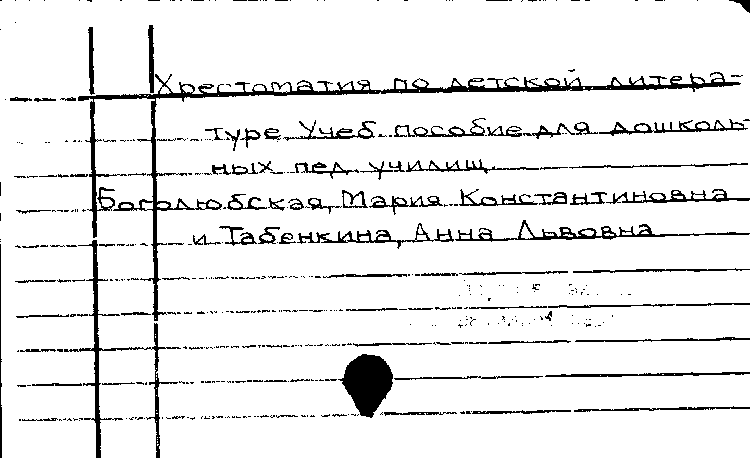 Хрестоматия по детской литера-
туре. Учеб. пособие для дошколь-
ных пед. училищ.
Боголюбская, Мария Константиновна
и Табенкина, Анна Львовна